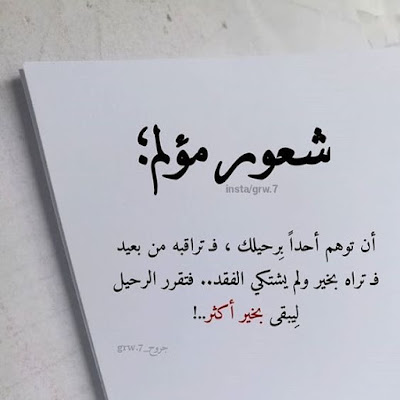 شعور مؤلم؛
insta/grw.7
أن توهم أحداً بِرحيلك ، فـ تراقبه من بعيد
فـ تراه بخير ولم يشتكي الفقد.. فتقرر الرحيل
لِيبقى بخير أكثر..!
جروح_grw.7